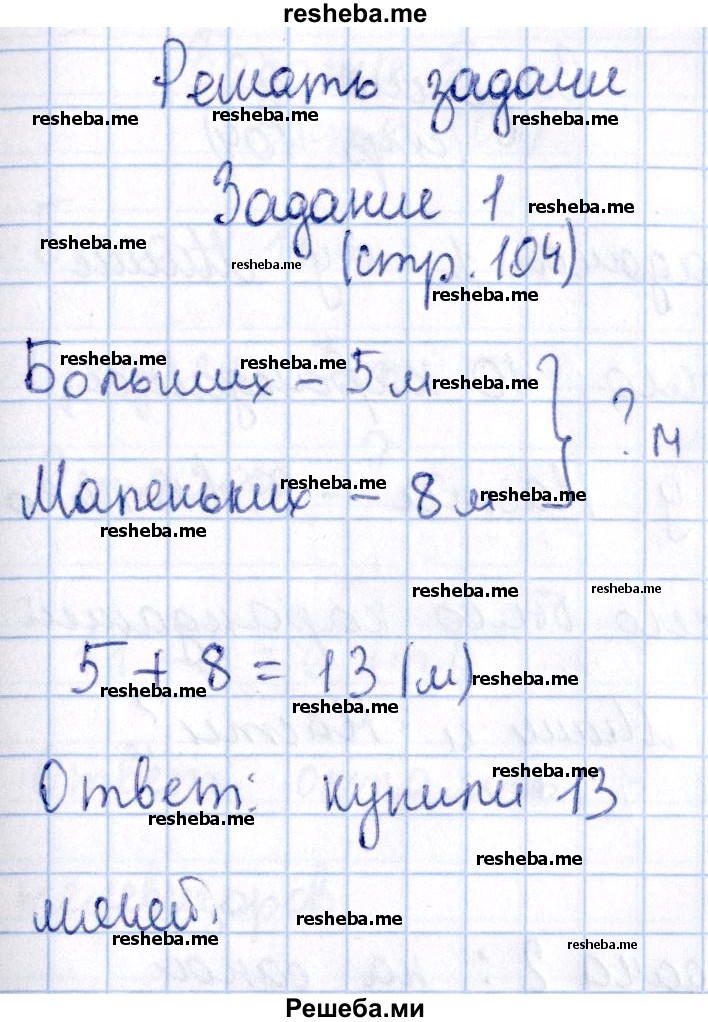 resheba.me
Решать задачи
resheba.me resheba.me resheba.me
Задание 1 resheba.me
resheba.me resheba.me (стр. 104)
resheba.me
resheba.me resheba.me
Больших – 5 м resheba.me } ? м
resheba.me
Маленьких – 8 м resheba.me
resheba.me
resheba.me resheba.me
5 + 8 = 13 (м) resheba.me
resheba.me resheba.me
resheba.me
Ответ: купили 13
resheba.me
resheba.me
мячей. resheba.me
resheba.me resheba.me
Решеба.ми